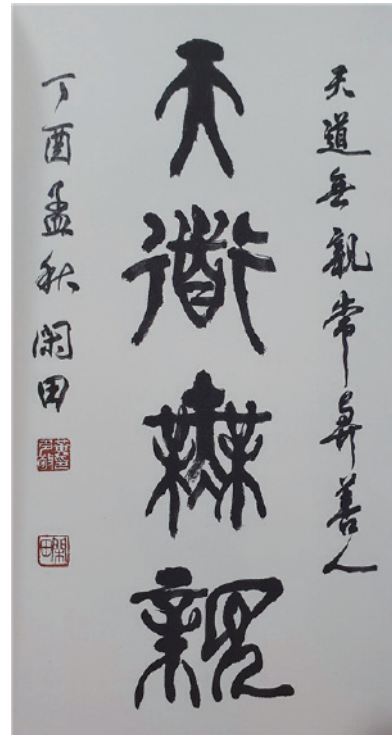 天道無親常與善人
天道無親
丁酉孟秋 閑田
閑田